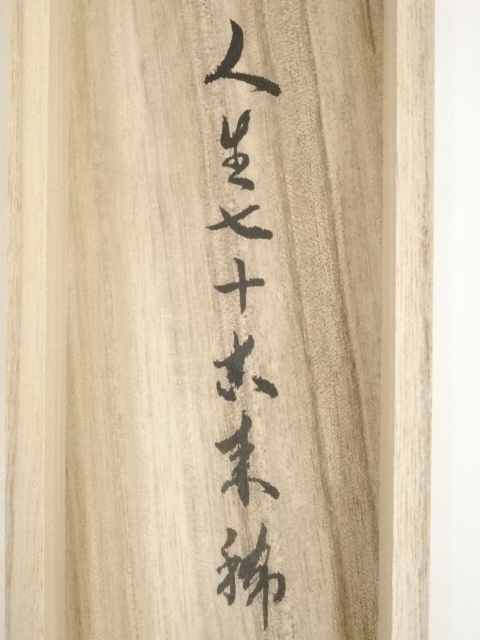 人生七十古来稀